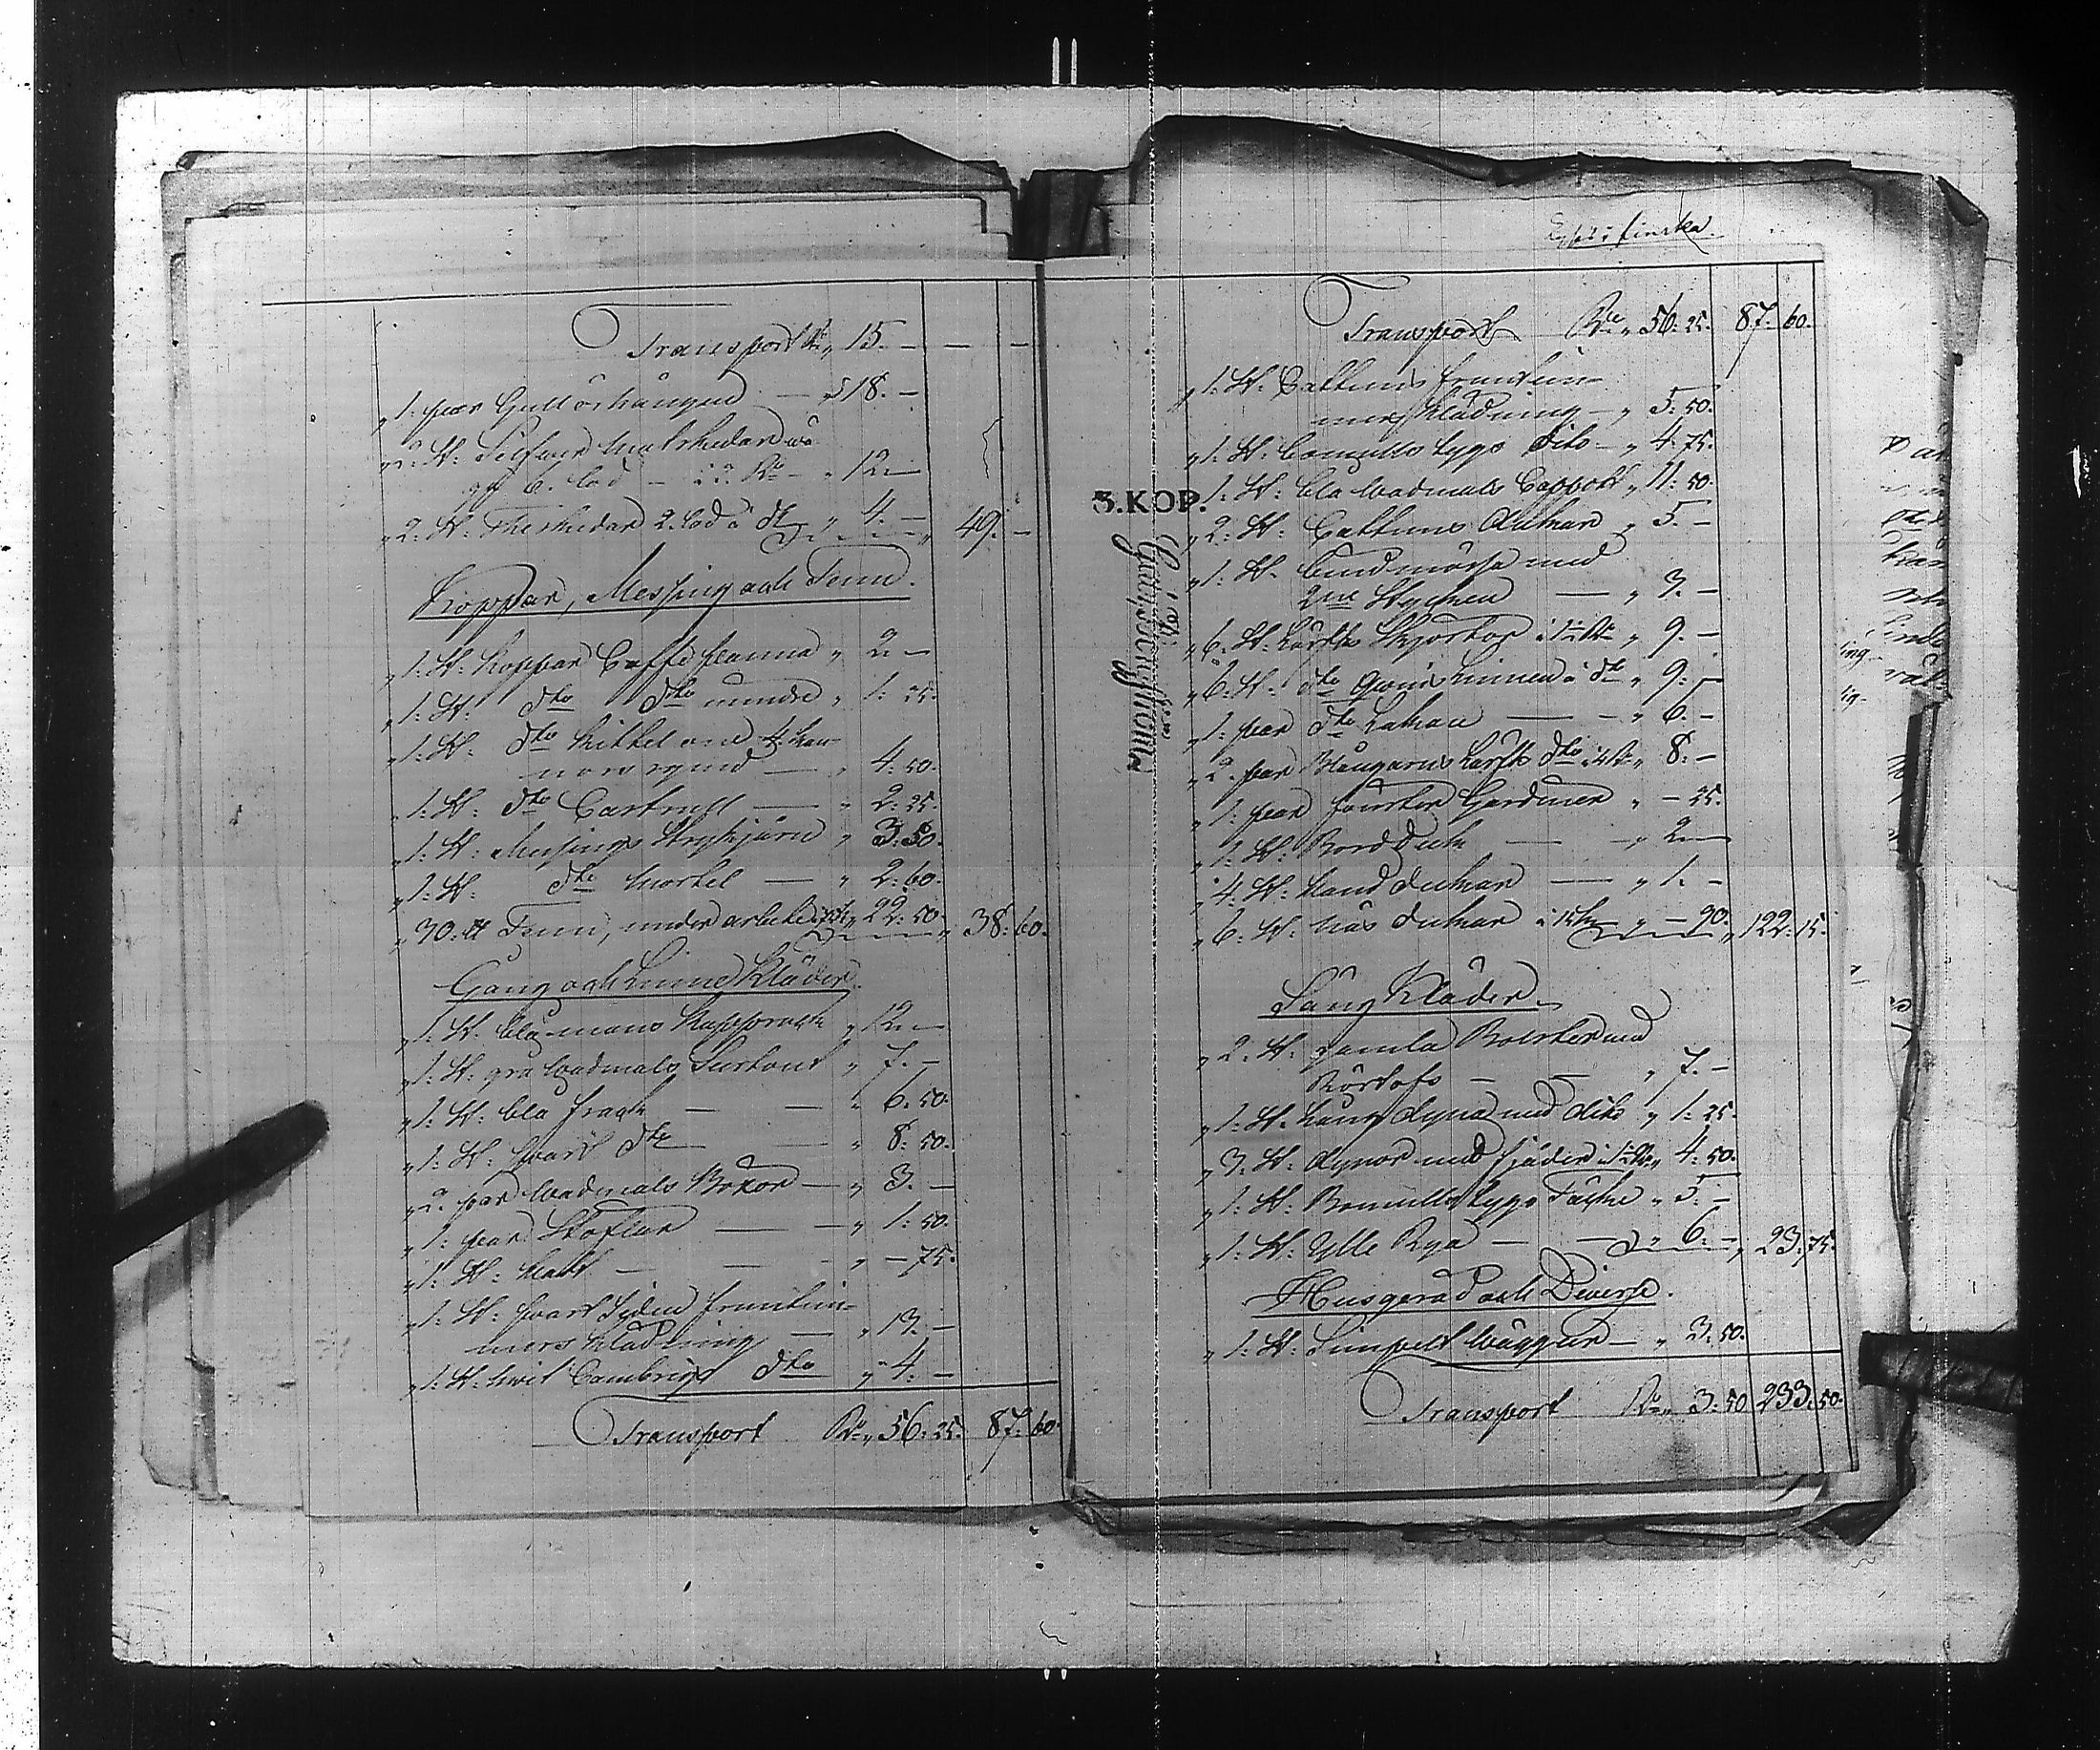 Transport Rr „ 15. — — —
„ 1. par Gull örhängen — „ 18. —
„ 2. St: Silfver Matskedar wä-
gf 6. lod — à 2. Rr — „ 12. —
„ 2. St: Theskedar 2. lod à dt „ 4. — „ 49. —
Koppar, Messing och Tenn.
„ 1. St: Koppar Caffe panna „ 2. —
„ 1. St: dto dto mindre „ 1. 25.
„ 1. St: dto Kittel om 4. kan-
nors rymd — „ 4. 50.
„ 1. St: dto Castrull — „ 2. 25.
„ 1. St: Messings Strykjärn „ 3. 50.
„ 1. St: dto Mortel — „ 2. 60.
„ 30. ℔ Tenn, under arbete „ 22. 50. „ 38. 60.
Gång och Linne Kläder.
„ 1. St: blå mans Kapprock „ 12. —
„ 1. St: grå Wadmals Surtout „ 7. —
„ 1. St: blå frack — — „ 6. 50.
„ 1. St: svart dto — „ 8. 50.
„ 2. par Wadmals Böxor — „ 3. —
„ 1. par Stöflar — — „ 1. 50.
„ 1. St: Hatt — — „ — 75.
„ 1. St: svart Siden fruntim-
mers Klädning — „ 13. —
„ 1. St: hvit Cambrigs dto „ 4. —
Transport Rr „ 56. 25. 87. 60.
finska
Transport Rr „ 56. 25. 87. 60.
„ 1. St: Cattuns fruntim-
mers Klädning — „ 5. 50.
„ 1. St: Bomulls tygs dito — „ 4. 75.
„ 1. St: blå Wadmals Cappott „ 11. 50.
5.KOP.
„ 2. St: Cattuns Dukar „ 5. —
„ 1. St: bindmössa med
2ne Stycken — „ 3. —
„ 6. St: Lärfts Skjortor à 1½ Rr „ 9. —
„ 6. St: dto Qvins Linnen à dt „ 9. —
„ 1. par dto Lakan — — „ 6. —
„ 2. par Blångarns Lärfts dto à 4 Rr „ 8. —
„ 1. par fönster Gardiner „ — 25.
„ 1. St: Bord Duk — „ 2. —
„ 4. St: Hand dukar — „ 1. —
„ 6. St: Näs dukar à 15 k „ — 90. „ 122. 15.
Säng Kläder.
„ 2. St: gamla Bolster med
— — „ 7. —
„ 1. St: Lång dyna med dito „ 1. 25.
„ 3. St: dynor med fjäder à 1½ Rr „ 4. 50.
„ 1. St: Bomulls tygs Täcke „ 5. —
„ 1. St: Ylle Rya — — „ 6. — „ 23. 75.
Husgeråd och Diverse.
„ 1. St: Simpelt Wäggur — „ 3. 50.
Transport Rr „ 3. 50 233. 50.